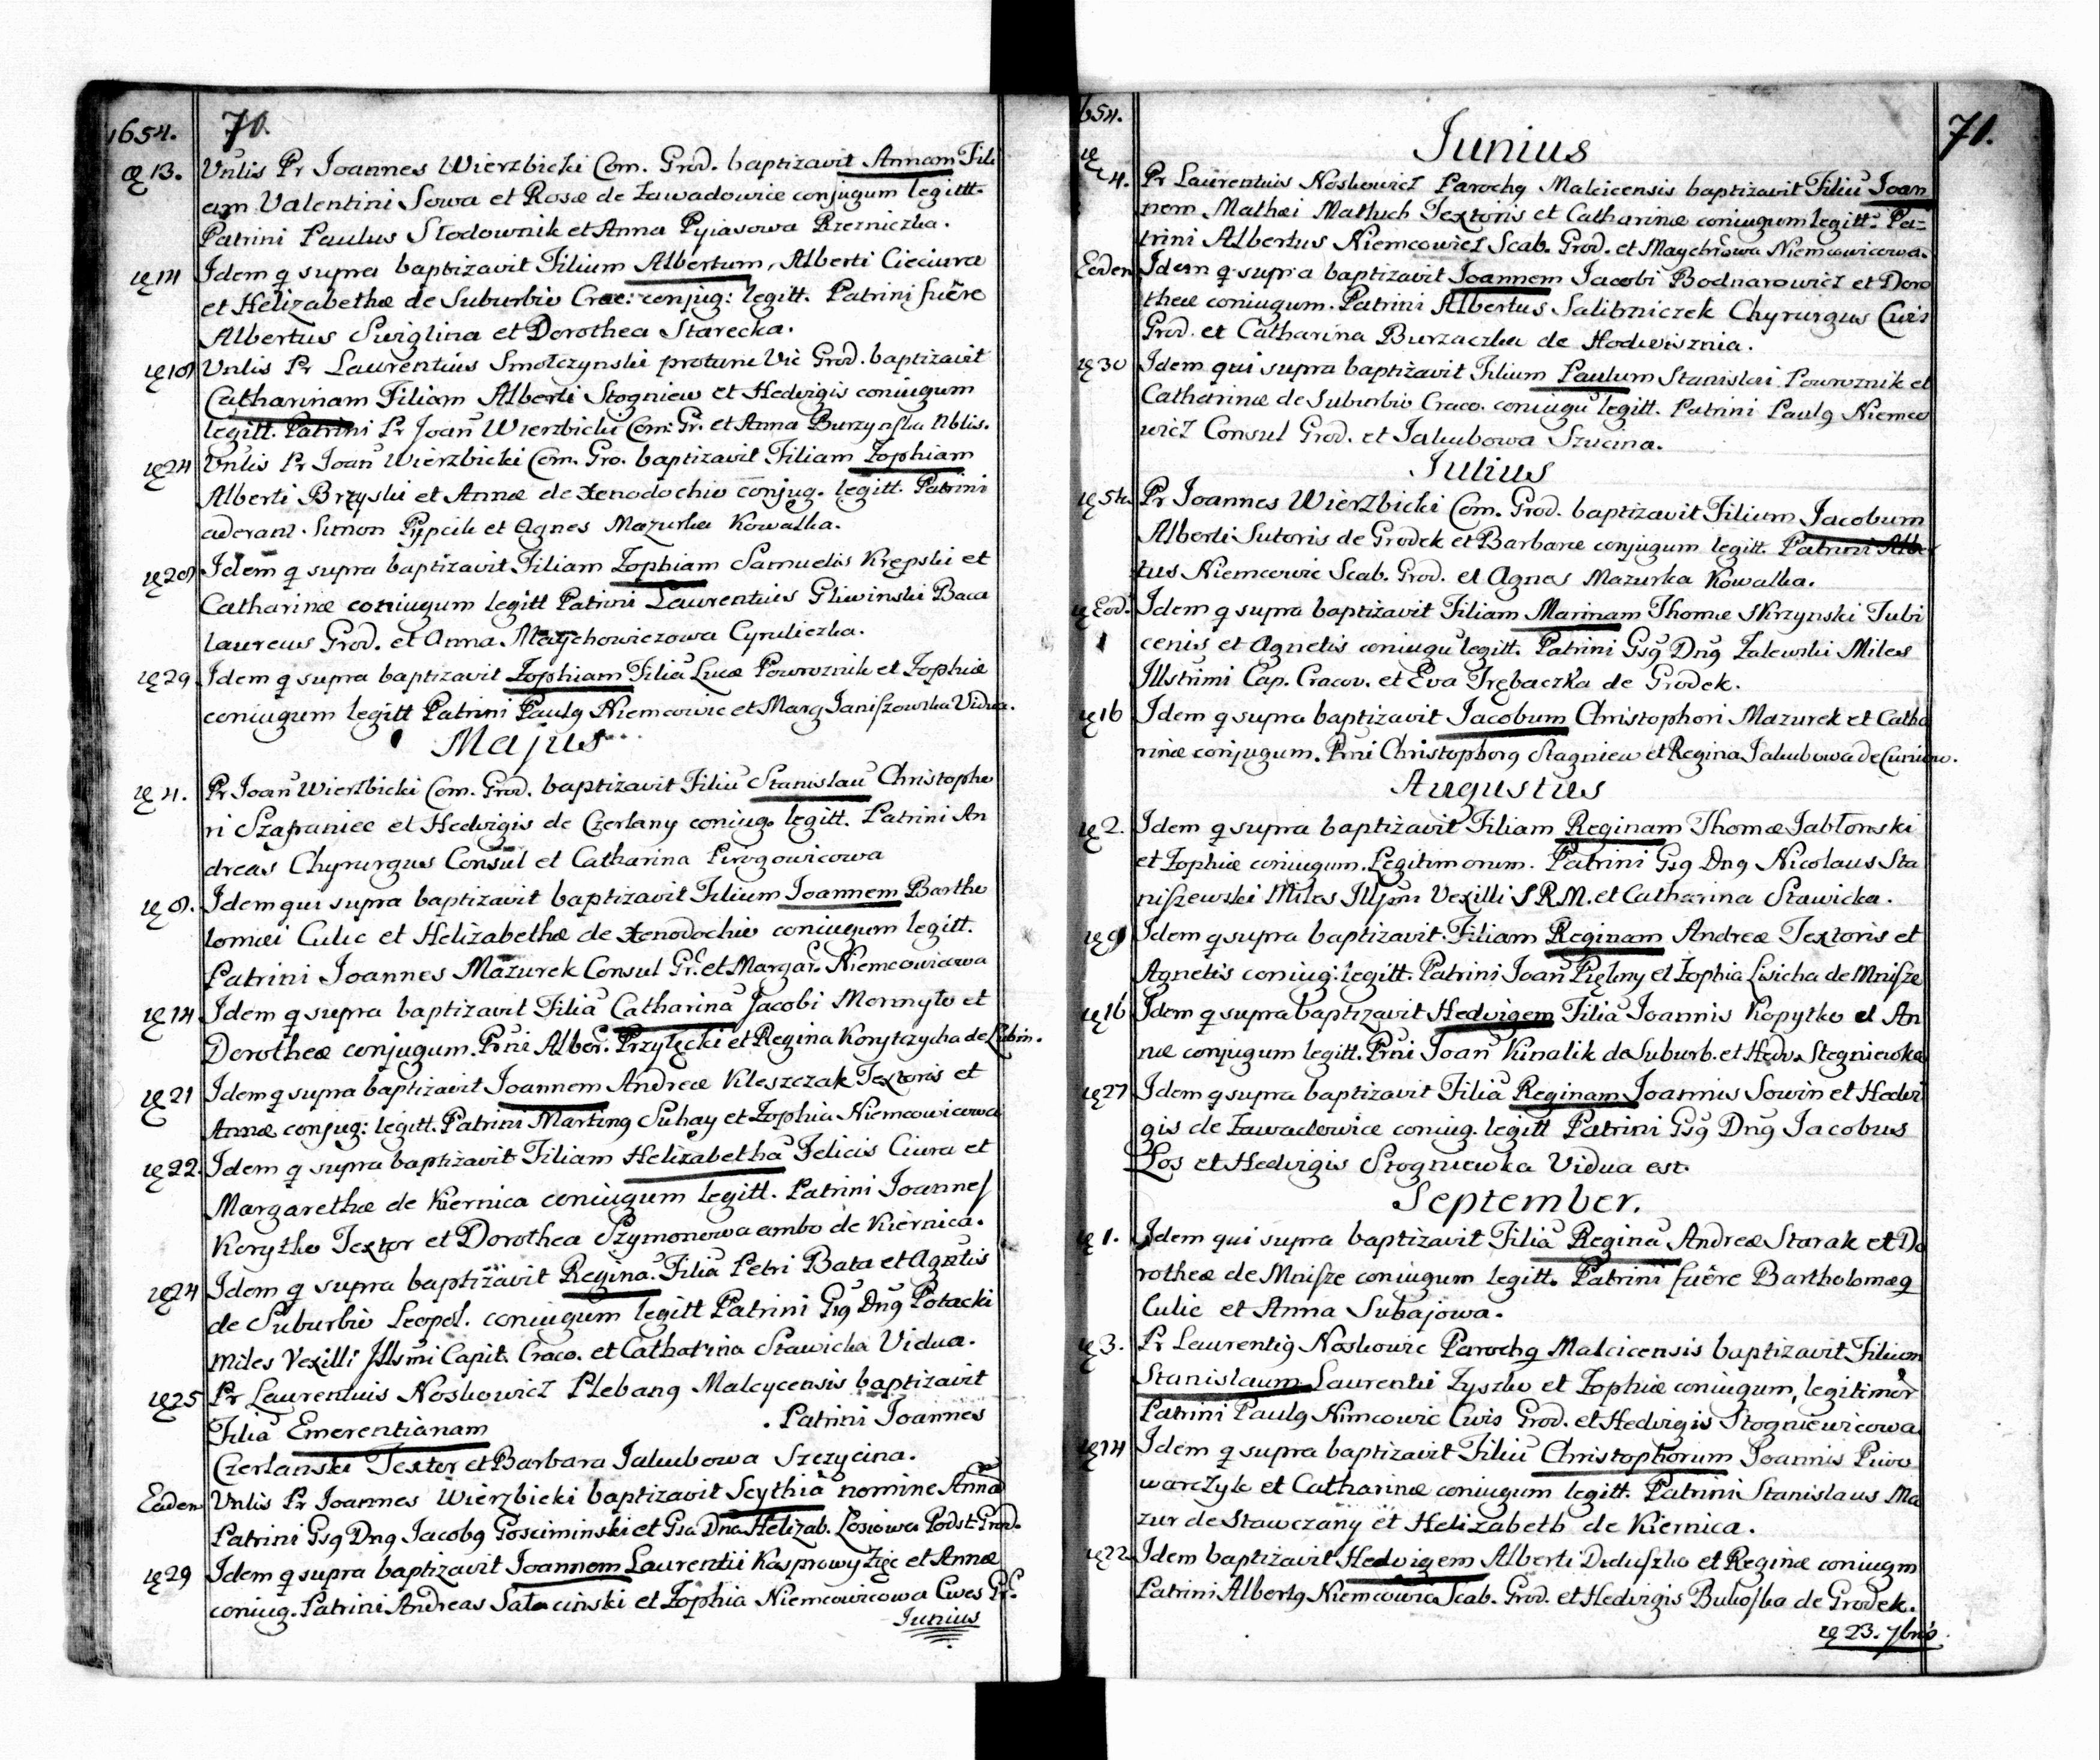 1654. 70.
æ 13. Vnlis Pr Joannes Wierzbicki Com. Grod. baptizavit Annam Fili
am Valentini Sowa et Rosæ de Zawadowice conjugum legitt.
Patrini Paulus Słodownik et Anna Pyiasowa Rzezniczka.
æ 14 Idem q supra baptizavit Filium Albertum, Alberti Cieciura
et Helizabethæ de Suburbio Crac: conjug: legitt. Patrini fuêre
Albertus Swiglina et Dorothea Starecka.
Vnlis Pr Laurentius Smołczynski protunc Vic Grod. baptizavit
Catharinam Filiam Alberti Stogniew et Hedvigis coniugum
legitt. Patrini Pr Joañ Wierzbicki Com: Gr. et Anna Burzynska Nblis.
æ 24 Vnlis Pr Joañ Wierzbicki Com. Gro. baptizavit Filiam Zophiam
Alberti Brzyski et Annæ de Xenodochio conjug. legitt. Patrini
aderant Simon Pypcik et Agnes Mazurka Kowalka.
Idem q supra baptizavit Filiam Zophiam Samuelis Krępski et
Catharinæ coniugum legitt Patrini Laurentius Gliwinski Baca
laureus Grod. et Anna Maychowiczowa Cyruliczka.
æ 29 Idem q supra baptizavit Zophiam Filiã Lucæ Powroznik et Zophiæ
coniugum legitt Patrini Paulq Niemcowic et Marg Janiszowska Vidua.
Majus
æ 4. Pr Joañ Wierzbicki Com. Grod. baptizavit Filiũ Stanislaũ Christopho
ri Szafraniec et Hedvigis de Czerlany coniug. legitt. Patrini An
dreas Chyrurgus Consul et Catharina Pirogowicowa
Idem qui supra baptizavit baptizavit Filium Joannem Bartho
lomæi Culic et Helizabethæ de Xenodochio coniugum legitt.
Patrini Joannes Mazurek Consul Gr. et Margar. Niemcowicowa
æ 14 Idem q supra baptizavit Filiã Catharinã Jacobi Mormyło et
Dorotheæ conjugum. Prni Alber. Przyłęcki et Regina Korytczycha de Lubin.
æ 21 Idem q supra baptizavit Joannem Andreæ Kleszczak Textoris et
Annæ conjug: legitt. Patrini Martinq Suhay et Zophia Niemcowicowa
æ 22. Idem q supra baptizavit Filiam Helizabethã Felicis Ciura et
Margarethæ de Kiernica coniugum legitt. Patrini Joannes
Korytko Textor et Dorothea Szymonowa ambo de Kiernica.
æ 24 Idem q supra baptizavit Reginã Filiã Petri Bata et Agnetis
de Suburbio Leopol. coniugum legitt Patrini Gsq Dnq Potacki
Miles Vexilli Jllsmi Capit. Craco. et Catharina Stawicka Vidua.
æ 25 Pr Laurentius Noskowicz Plebanq Malcycensis baptizavit
Filiã Emerentianam . Patrini Joannes
Czerlanski Textor et Barbara Jakubowa Szczycina.
Eaden Vnlis Pr Joannes Wierzbicki baptizavit Scythiã nomine Annã
Patrini Gsq Dnq Jacobq Gosciminski et Gsa Dna Helizab. Losiowa Podst: Grod.
æ 29 Idem q supra baptizavit Joannem Laurentii Kasprowy Zięc et Annæ
coniug. Patrini Andreas Satacinski et Zophia Niemcowicowa Cives Gr.
Junius
654. 71.
Junius
æ 4. Pr Laurentius Noskowicz Parochq Malcicensis baptizavit Filiũ Joan
nem Mathæi Matluch Textoris et Catharinæ coniugum legitt: Pa-
trini Albertus Niemcowicz Scab. Grod. et Maychrowa Niemcowicowa.
Eoden Idem q supra baptizavit Joannem Jacobi Bodnarowicz et Doro
theæ coniugum. Patrini Albertus Salitrniczek Chyrurgus Civis
Grod. et Catharina Burzaczka de Hodwisznia.
æ 30 Idem qui supra baptizavit Filium Paulum Stanislai Powroznik et
Catharinæ de Suburbio Craco. coniugũ legitt. Patrini Paulq Niemco
wicz Consul Grod. et Jakubowa Szucina.
Julius
æ 5ta Pr Joannes Wierzbicki Com. Grod. baptizavit Filium Jacobum
Alberti Sutoris de Grodek et Barbaræ conjugum legitt. Patrini Alber
tus Niemcowic Scab. Grod. et Agnes Mazurka Kowalka.
æ Eod. Idem q supra baptizavit Filiam Marinam Thomæ Skrzynski Tubi
cenis et Agnetis coniugũ legitt. Patrini Gsq Dnq Zalewski Miles
Jllstrimi Cap. Cracov. et Eva Trębaczka de Grodek.
æ 16 Idem q supra baptizavit Jacobum Christophori Mazurek et Catha
rinæ conjugum. Prni Christophorq Stagniew et Regina Jakubowa de Cuniow.
Augustus
æ 2. Idem q supra baptizavit Filiam Reginam Thomæ Jabłonski
et Zophiæ coniugum. Legitimorum. Patrini Gsq Dnq Nicolaus Sta
niszewski Miles Vexilli S R M. et Catharina Stawicka.
æ 9 Idem q supra baptizavit Filiam Reginam Andreæ Textoris et
Agnetis coniug: legitt. Patrini Joañ Piękny et Zophia Lisicha de Mnisze
æ 16 Idem q supra baptizavit Hedvigem Filiã Joannis Kopytko et An
næ conjugum legitt. Prni Joañ Kinalik de Suburb. et Hedv. Stegniewka
æ 27 Idem q supra baptizavit Filiã Reginam Joannis Sowin et Hedvi
gis de Zawadowice coniug. legitt Patrini Gsq Dnq Jacobus
Łos et Hedvigis Stogniewka Vidua est.
September.
æ 1. Idem qui supra baptizavit Filiã Reginã Andreæ Starak et Do
rotheæ de Mnisze coniugum legitt. Patrini fuêre Bartholomæq
Culic et Anna Subajowa.
æ 3. Pr Laurentiq Noskowic Parochq Malcicensis baptizavit Filium
Stanislaum Laurentii Zyszko et Zophiæ coniugum, legitimor
Patrini Paulq Nimcowic Civis Grod. et Hedvigis Stogniewicowa
æ 14 Idem q supra baptizavit Filiũ Christophorum Joannis Piwo
warczyk et Catharinæ coniugum legitt. Patrini Stanislaus Ma
zur de Stawczany et Helizabeth de Kiernica.
æ 22 Idem baptizavit Hedvigem Alberti Diduszko et Reginæ coniugm
Patrini Albertq Niemcowic Scab. Grod. et Hedvigis Bukoska de Grodek.
æ 23. 7bris